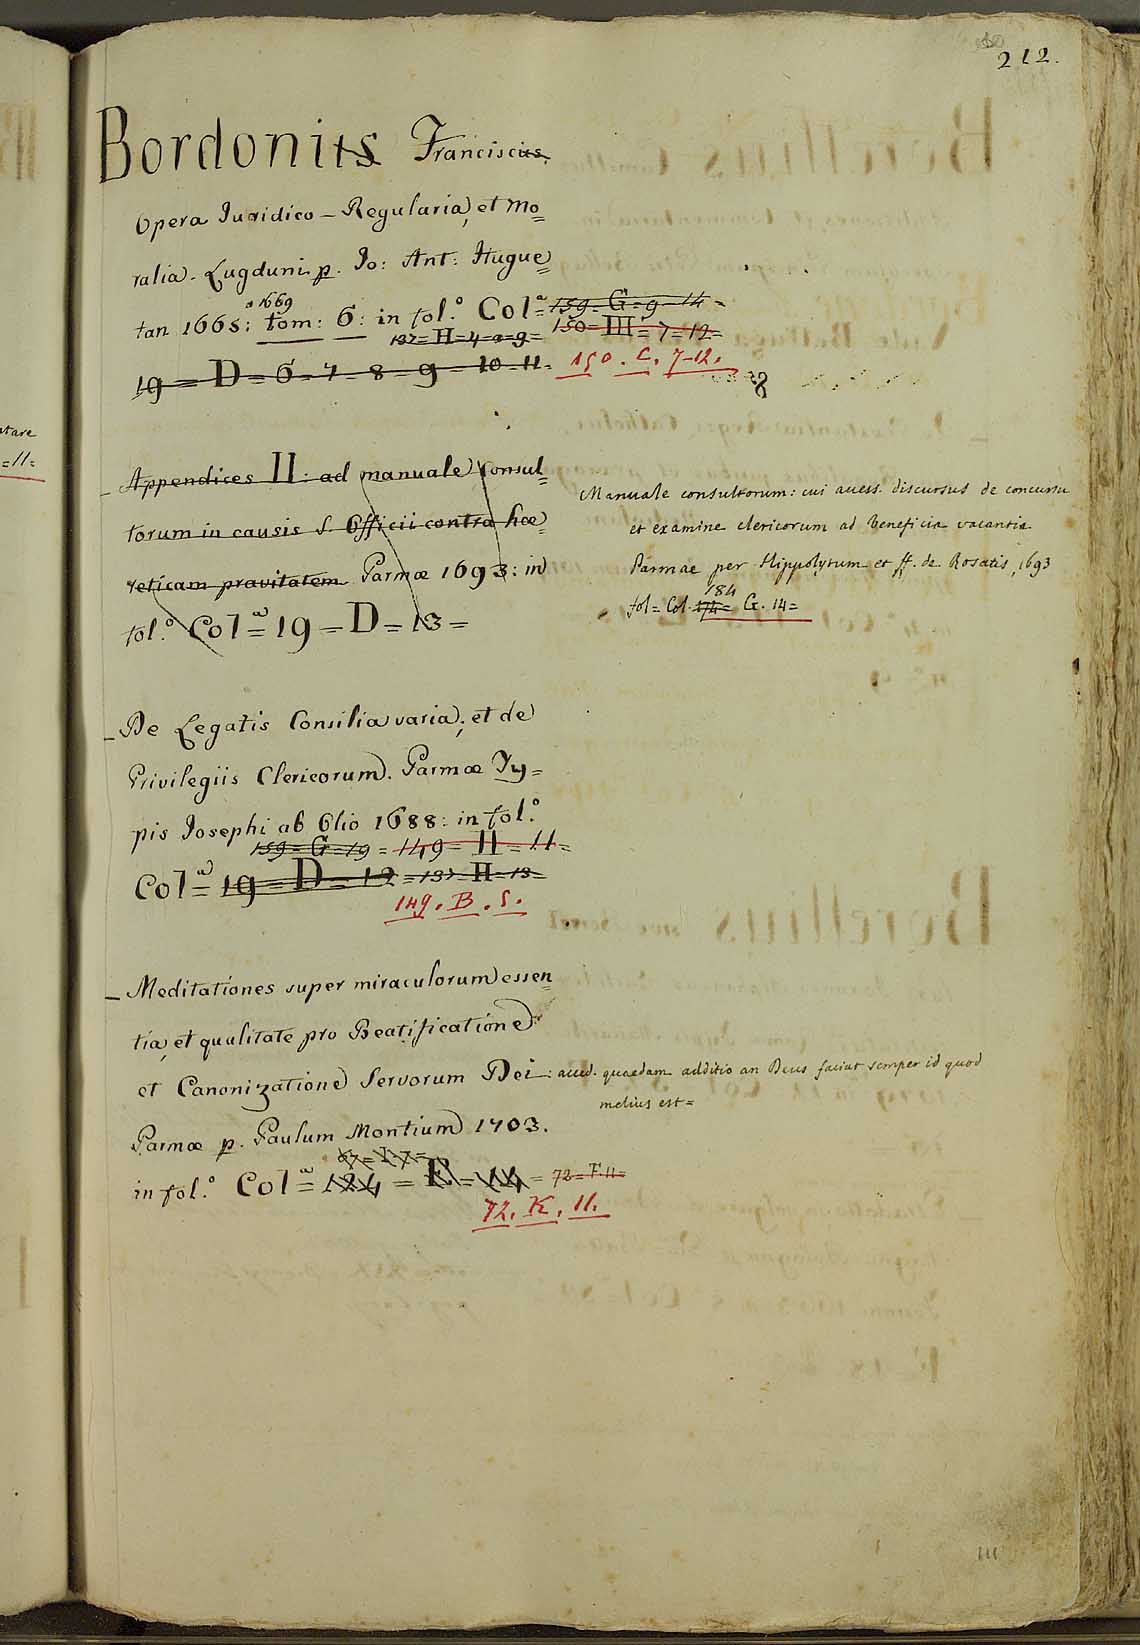 212.
Bordonius Franciscus
Opera Iuridico – Regularia, et Mo=
ralia. Lugduni p. Io: Ant: Hugue=
a 1669
tan 1665: tom: 6: in fol.º Col.ª = 159 = G = 9 - 14 =
137 = H = 4 = a = 9 = 150 = III = 7 = 12 =
19 = D = 6 - 7 - 8 - 9 - 10 - 11. 150. C. 7-12.
8
– Appendices II: ad manuale Consul=
torum in causis S. Officii contra hæ
reticam pravitatem Parmæ 1693: in
fol.º Col.ª = 19 = D = 13 =
Manuale consultorum: cui acess. discursus de concursu
et examine clericorum ad beneficia vacantia
Parmae per Hippolytum et ff. de Rosatis, 1693
184
fol = Col. 174 = G. 14 =
– De Legatis Consilia varia, et de
Privilegiis Clericorum. Parmæ Ty=
pis Iosephi ab Olio 1688: in fol.º
159 = G = 19 = 149 = H = 11 =
Col.ª = 19 = D = 12 = 137 = H = 13 =
149. B. 5.
– Meditationes super miraculorum essen=
tia, et qualitate pro Beatificatione
et Canonizatione Servorum Dei: acced. quaedam additio an Deus faciat semper id quod
melius est =
Parmæ p. Paulum Montium 1703.
67 = I = 7 =
in fol.º Col.ª = 124 = E = 14 = 72 = F. 11 =
72. K. 11.